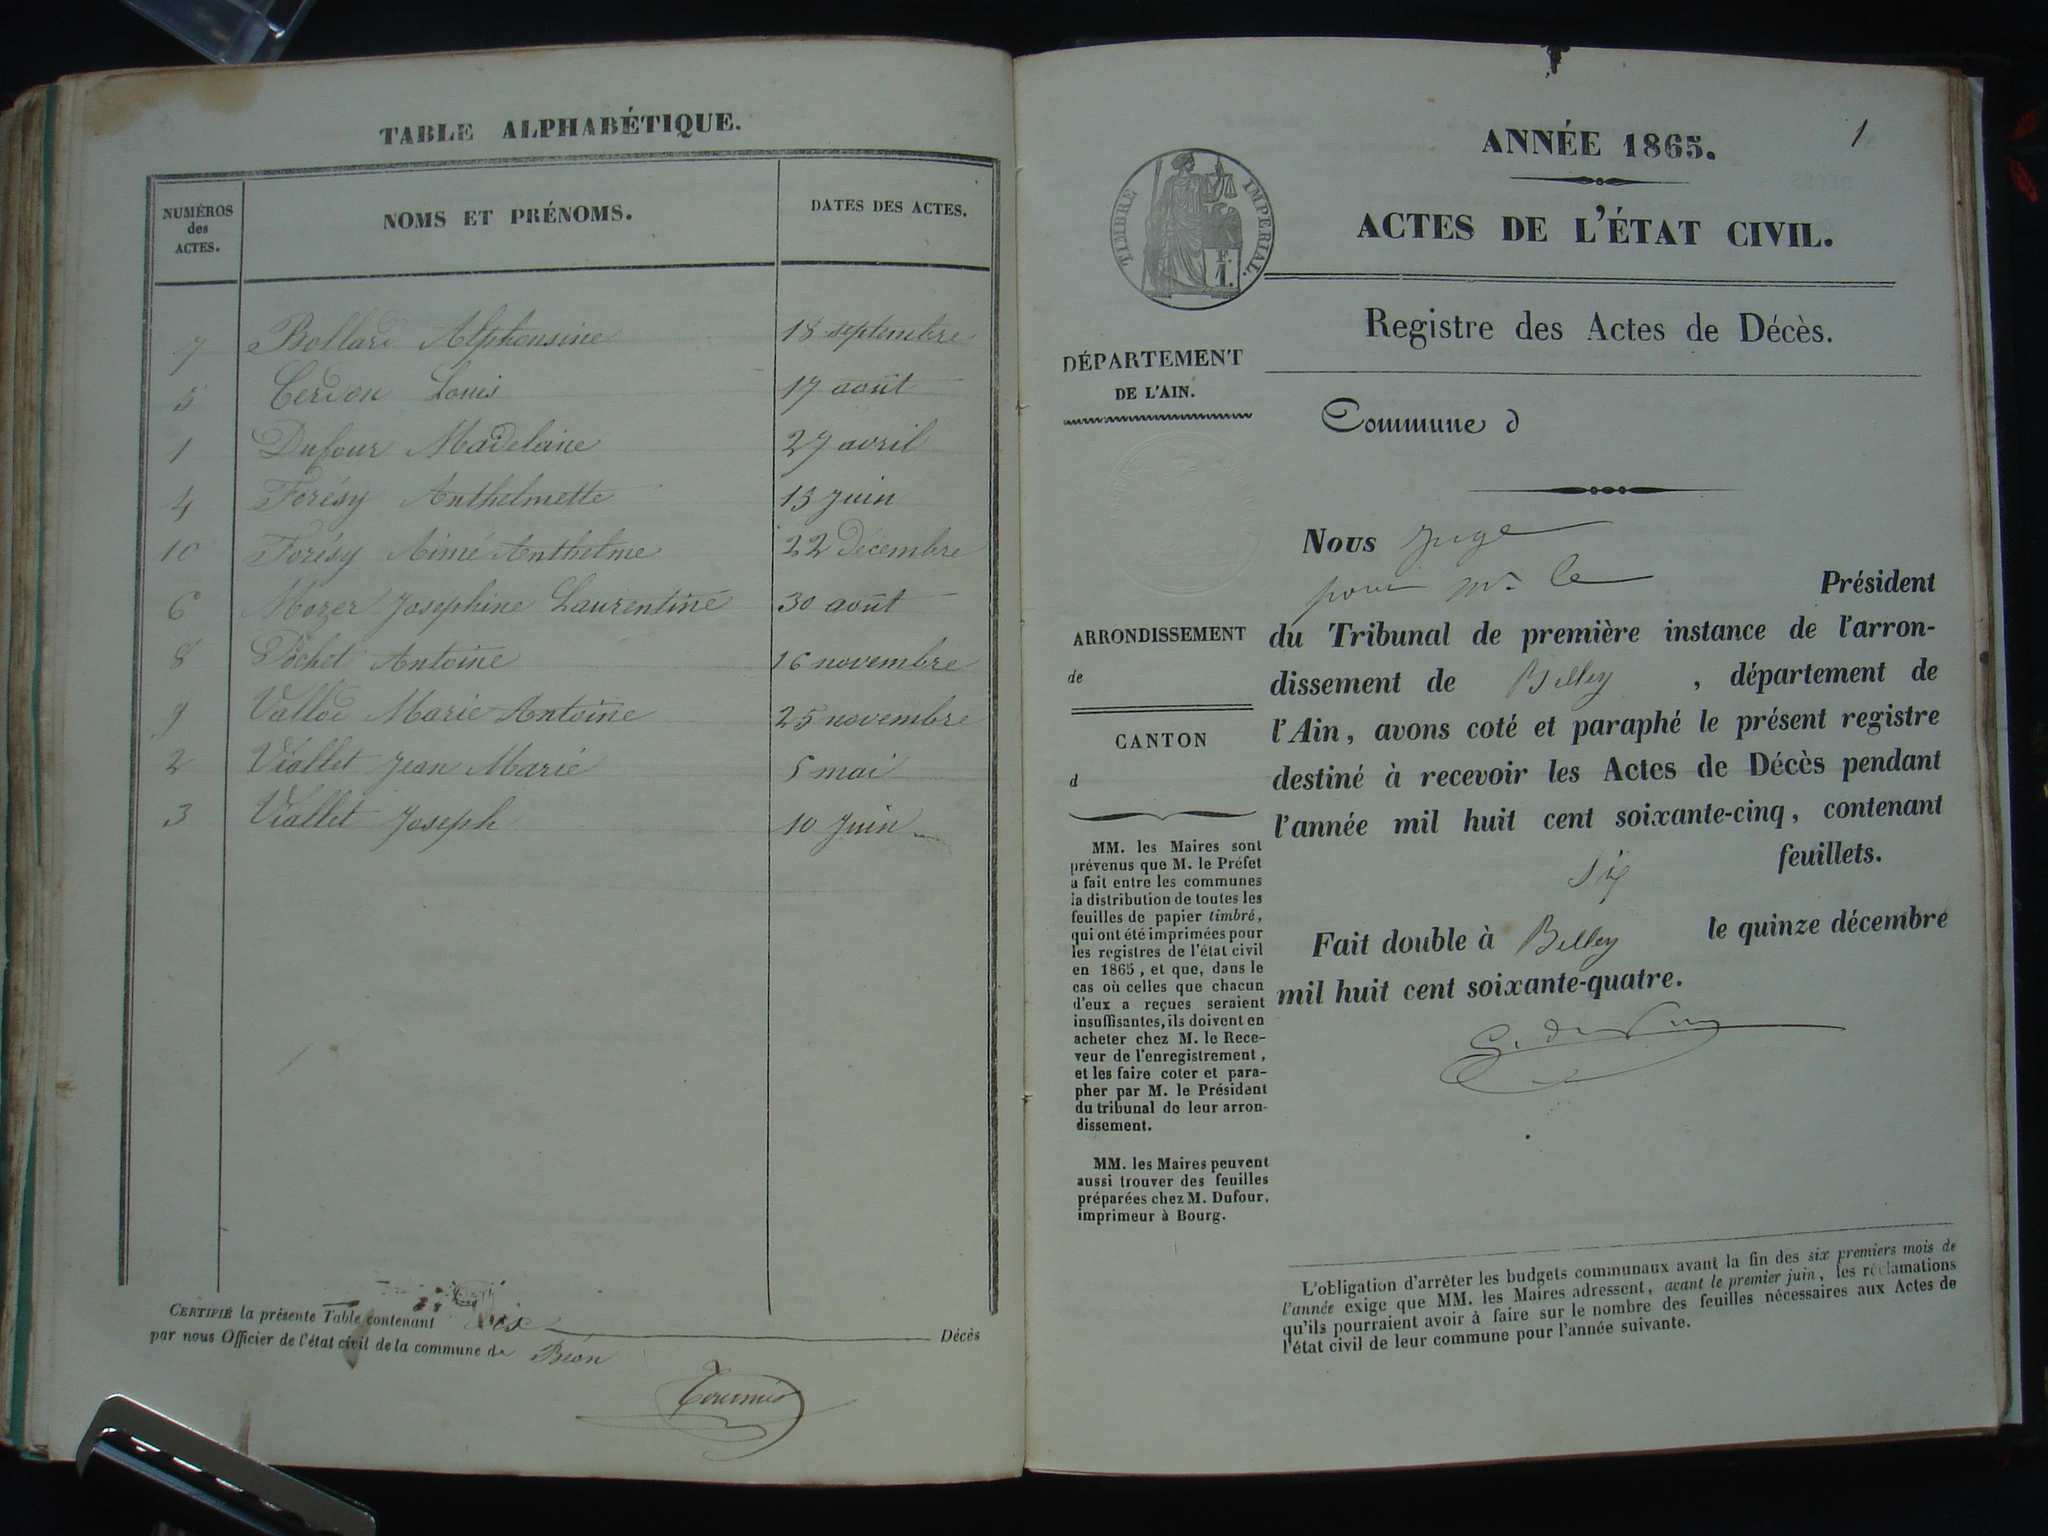 TABLE ALPHABÉTIQUE.
NUMÉROS des ACTES. NOMS ET PRÉNOMS. DATES DES ACTES.
7 Bollard Alphonsine 18 septembre
5 Cerdon Louis 17 août
1 Dufour Madeleine 27 avril
4 Forésy Anthelmette 13 juin
10 Forésy Aimé Anthelme 22 décembre
6 Mozer Josephine Laurentine 30 août
8 Pochet Antoine 16 novembre
9 Vallod Marie Antoine 25 novembre
2 Viallet Jean Marie 5 mai
3 Viallet Joseph 10 Juin
CERTIFIÉ la présente Table contenant dix Décès
par nous Officier de l'état civil de la commune de Béon
Tournier
1
ANNÉE 1865.
ACTES DE L'ÉTAT CIVIL.
TIMBRE IMPERIAL.
F. 1.
Registre des Actes de Décès.
DÉPARTEMENT
DE L'AIN.
Commune d
Nous Juge
pour Mr le Président
ARRONDISSEMENT
de
CANTON
d
du Tribunal de première instance de l'arron-
dissement de Belley, département de
l'Ain, avons coté et paraphé le présent registre
destiné à recevoir les Actes de Décès pendant
l'année mil huit cent soixante-cinq, contenant
six feuillets.
Fait double à Belley le quinze décembre
mil huit cent soixante-quatre.
MM. les Maires sont
prévenus que M. le Préfet
a fait entre les communes
la distribution de toutes les
feuilles de papier timbré,
qui ont été imprimées pour
les registres de l'état civil
en 1865, et que, dans le
cas où celles que chacun
d'eux a reçues seraient
insuffisantes, ils doivent en
acheter chez M. le Rece-
veur de l'enregistrement,
et les faire coter et para-
pher par M. le Président
du tribunal de leur arron-
dissement.
MM. les Maires peuvent
aussi trouver des feuilles
préparées chez M. Dufour,
imprimeur à Bourg.
L'obligation d'arrêter les budgets communaux avant la fin des six premiers mois de
l'année exige que MM. les Maires adressent, avant le premier juin, les réclamations
qu'ils pourraient avoir à faire sur le nombre des feuilles nécessaires aux Actes de
l'état civil de leur commune pour l'année suivante.